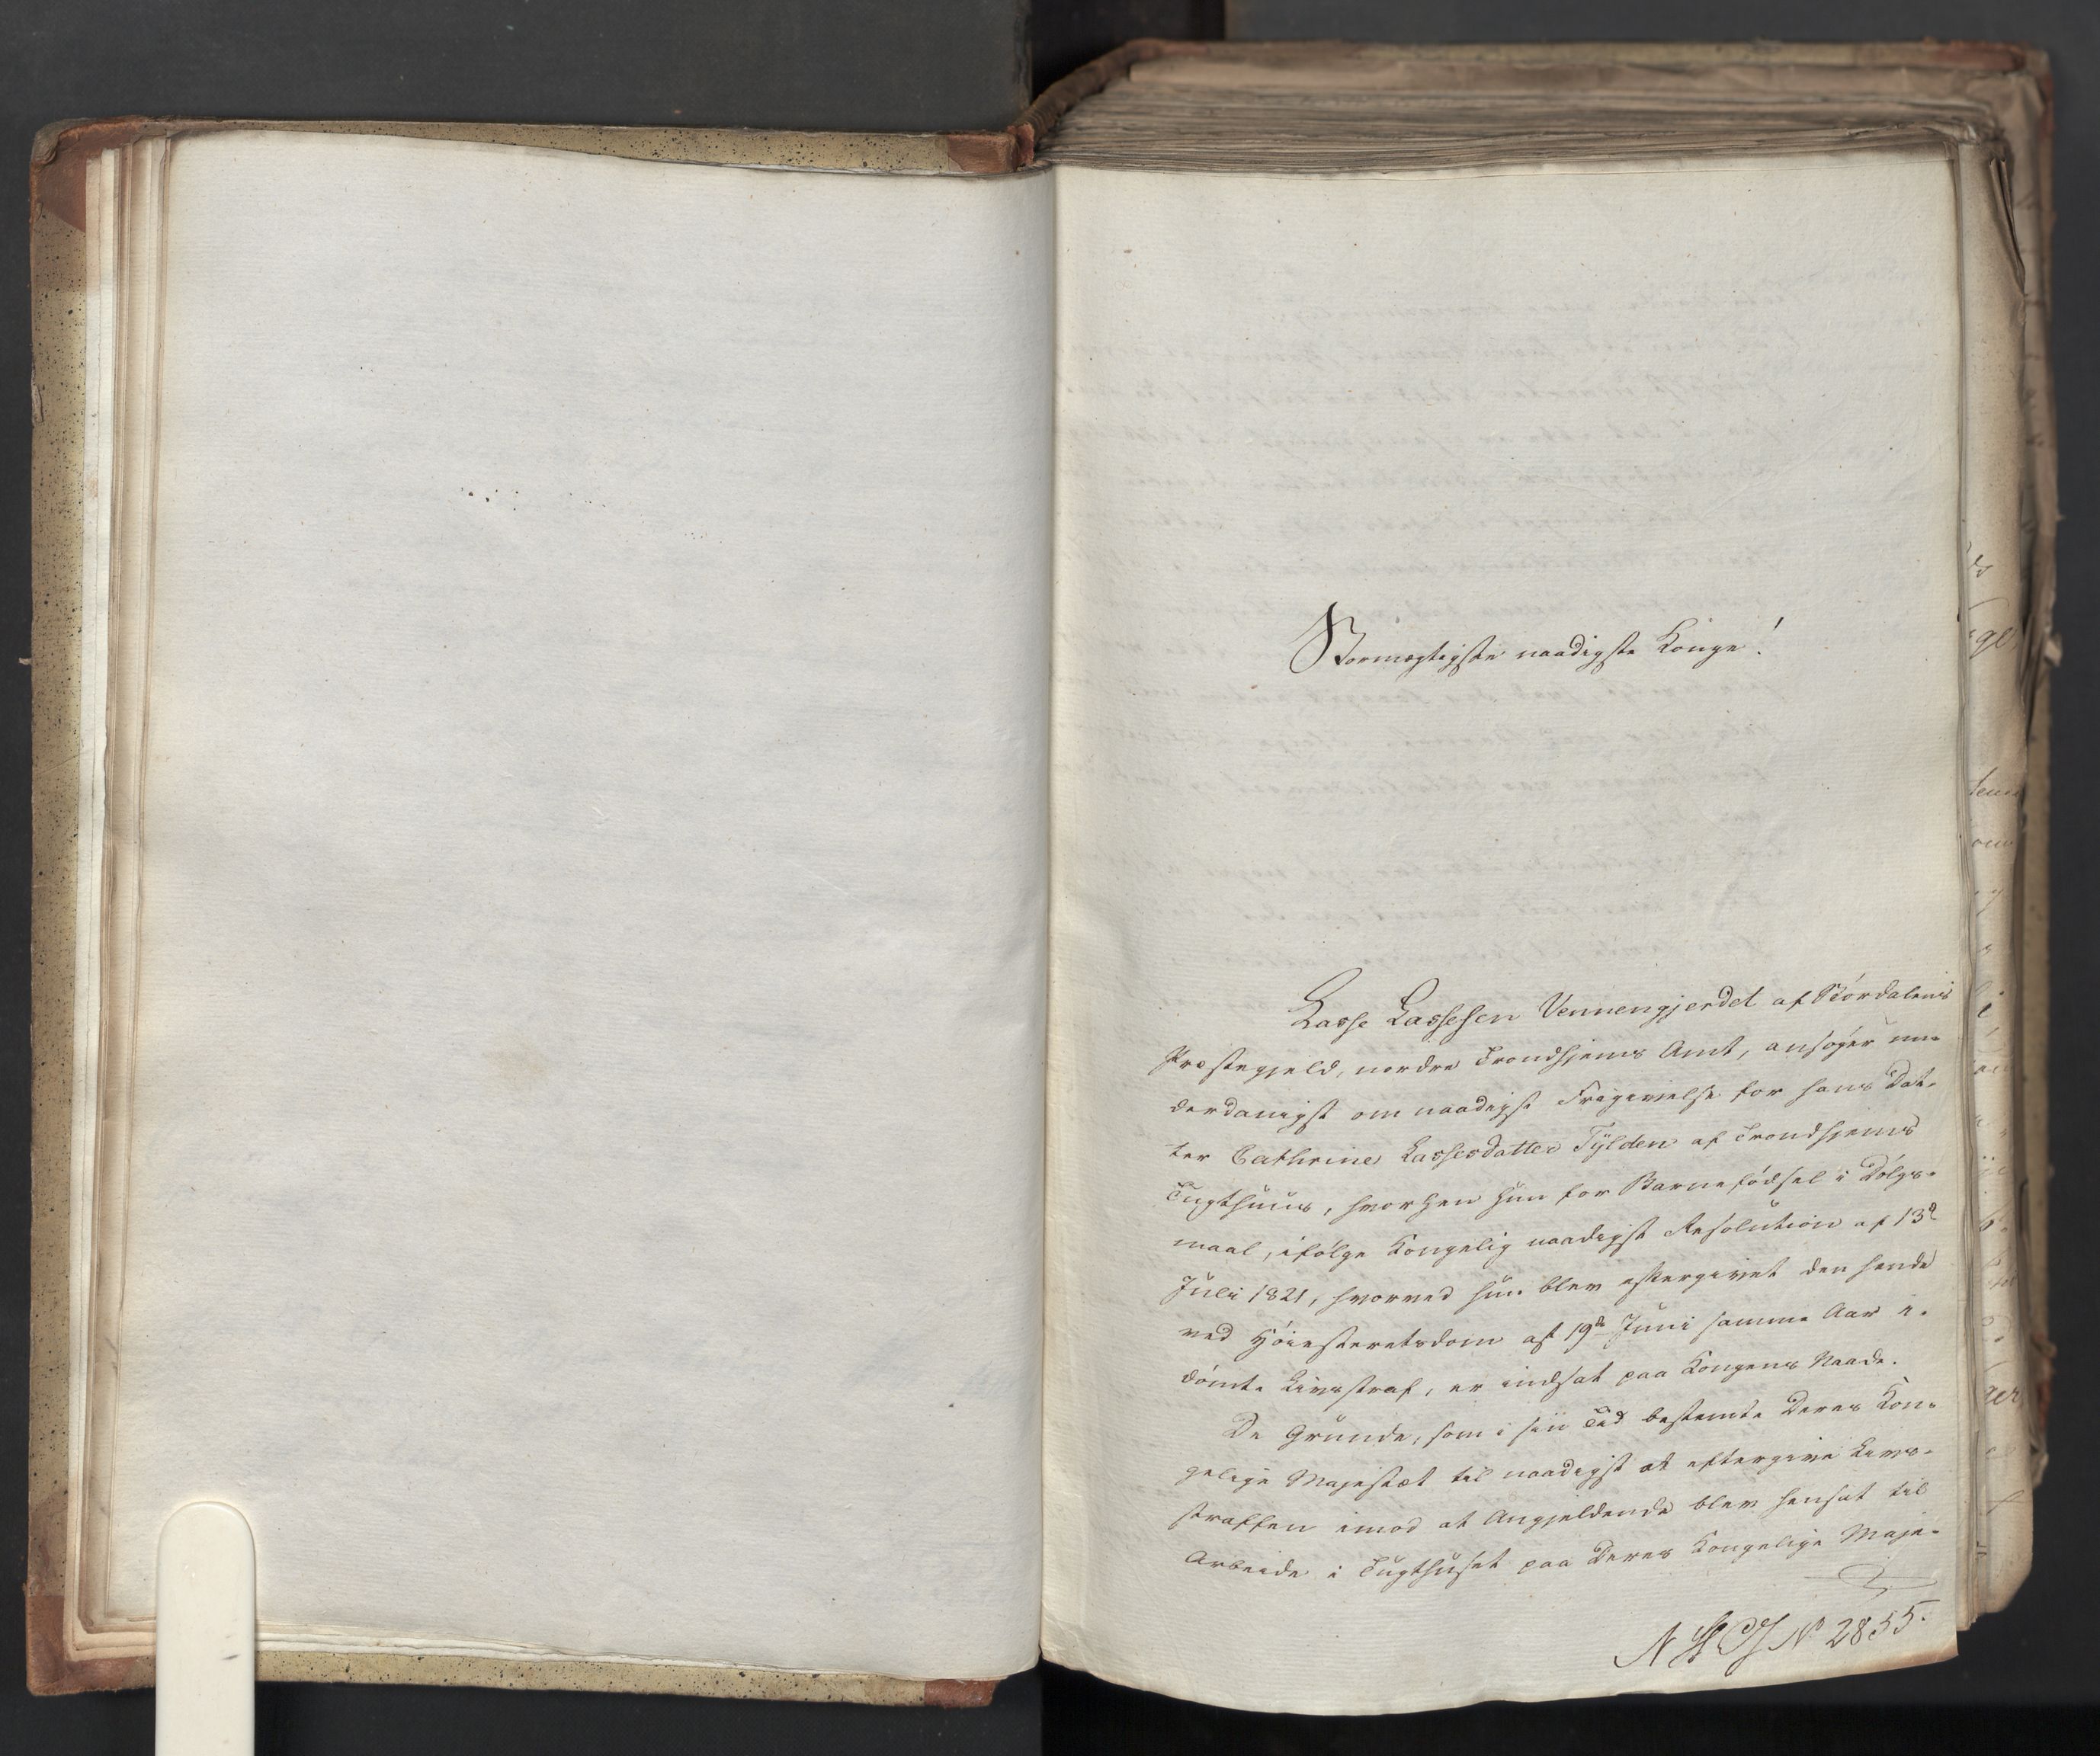 Stormægtigste naadigste Konge!
Lasse Lassesen Vennengjerdet af Stördalens
Præstegjeld, nordre Trondhjems Amt, ansøger un-
derdanigst om naadigst Frigivelse for hans Dat-
ter Cathrine Lassesdatter Tylden af Trondhjems
Tugthuus, hvorhen hun for Barnefödsel i Dölgs-
maal, ifölge Kongelig naadigst Resolution af 13de
Juli 1821, hvorved hun blev eftergivet den hende
ved Höiesteretsdom af 19de Juni samme Aar i-
dömte Livsstraf, er indsat paa Kongens Naade.
De Grunde, som i sin Tid bestemte Deres Kon-
gelige Majestæt til naadigst at eftergive Livs-
straffen imod at Angjeldende blev hensat til
Arbeide i Tugthuset paa Deres Kongelige Maje-
No 2855.